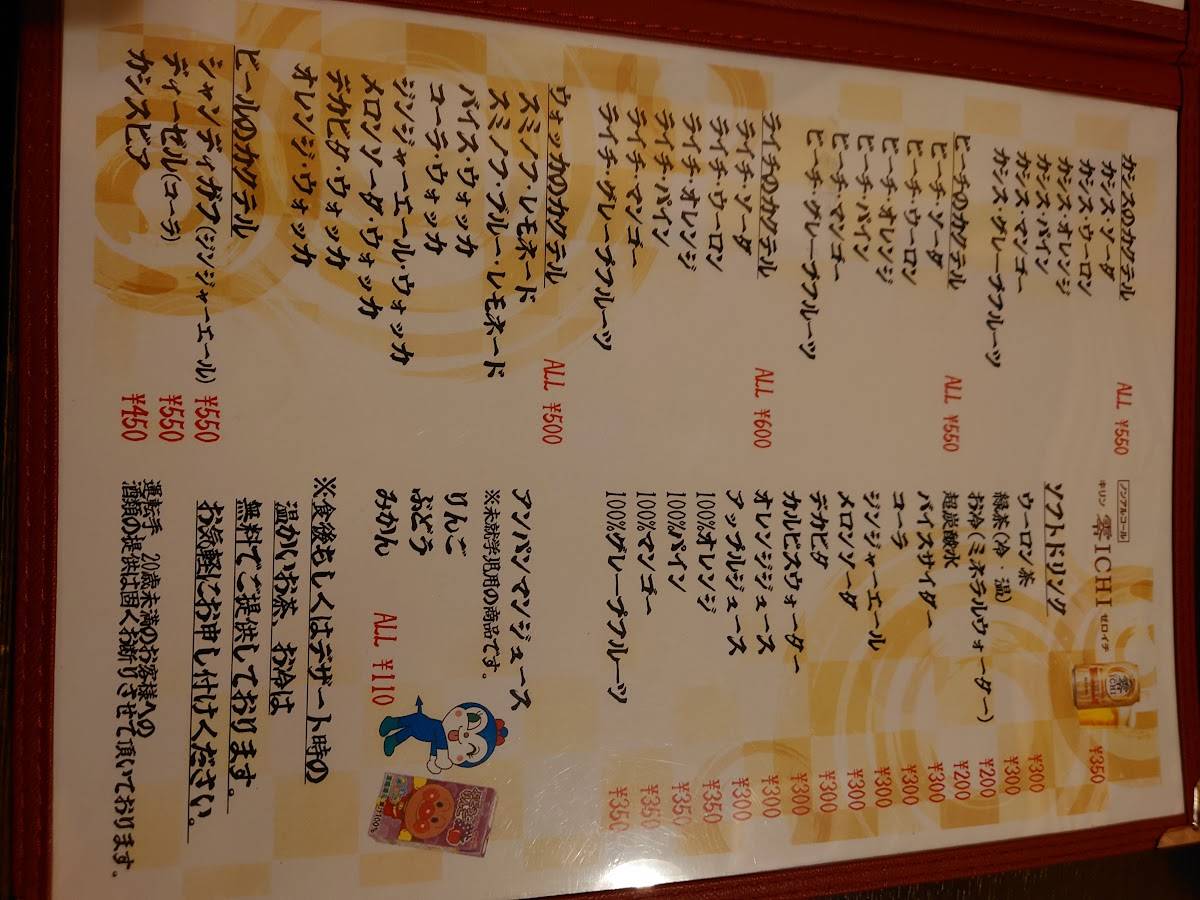 カシスのカクテル ALL ¥550
カシス・ソーダ
カシス・ウーロン
カシス・オレンジ
カシス・パイン
カシス・マンゴー
カシス・グレープフルーツ
ピーチのカクテル ALL ¥550
ピーチ・ソーダ
ピーチ・ウーロン
ピーチ・オレンジ
ピーチ・パイン
ピーチ・マンゴー
ピーチ・グレープフルーツ
ライチのカクテル ALL ¥600
ライチ・ソーダ
ライチ・ウーロン
ライチ・オレンジ
ライチ・パイン
ライチ・マンゴー
ライチ・グレープフルーツ
ウォッカのカクテル ALL ¥500
スミノフ・レモネード
スミノフ・ブルー・レモネード
バイス・ウォッカ
コーラ・ウォッカ
ジンジャーエール・ウォッカ
メロンソーダ・ウォッカ
デカビタ・ウォッカ
オレンジ・ウォッカ
ビールのカクテル
シャンディガフ(ジンジャーエール) ¥550
ディーゼル(コーラ) ¥550
カシスビア ¥450
ノンアルコール
キリン 零ICHI ゼロイチ ¥350
ソフトドリンク
ウーロン茶 ¥300
緑茶(冷・温) ¥300
お冷(ミネラルウォーター) ¥200
超炭酸水 ¥200
バイスサイダー ¥300
コーラ ¥300
ジンジャーエール ¥300
メロンソーダ ¥300
デカビタ ¥300
カルピスウォーター ¥300
オレンジジュース ¥300
アップルジュース ¥300
100%オレンジ ¥350
100%パイン ¥350
100%マンゴー ¥350
100%グレープフルーツ ¥350
アンパンマンジュース
※未就学児用の商品です。
りんご
ぶどう
みかん ALL ¥110
※食後もしくはデザート時の
温かいお茶、お冷は
無料でご提供しております。
お気軽にお申し付けください。
運転手、20歳未満のお客様への
酒類の提供は固くお断りさせて頂いております。